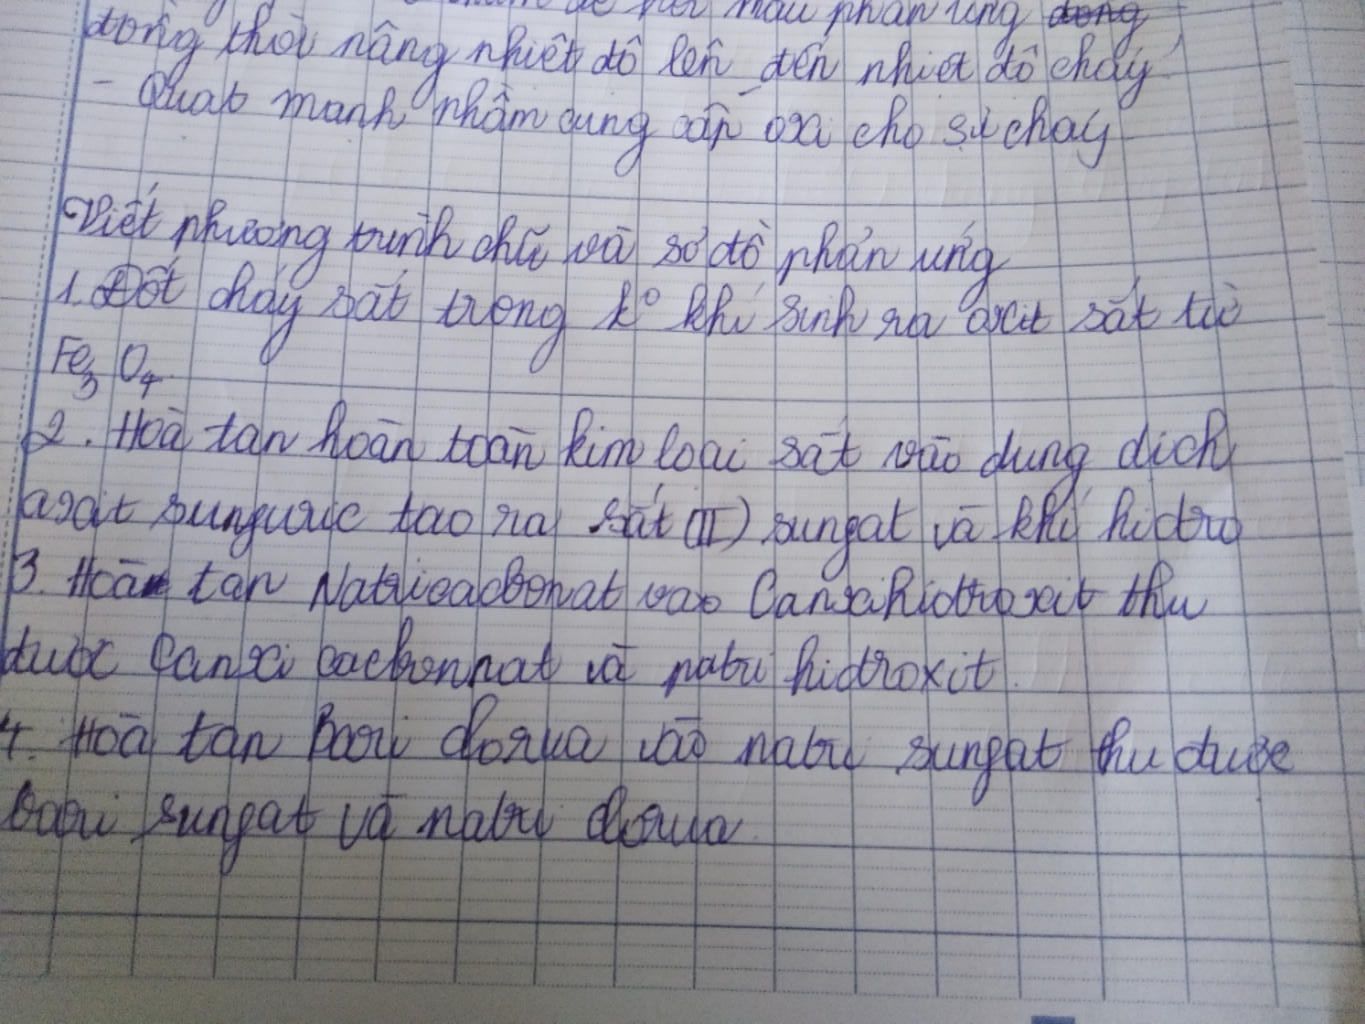 để bắt đầu phản ứng
đồng thời nâng nhiệt độ lên đến nhiệt độ cháy
- Quat manh nhằm cung cấp oxi cho sự cháy
Viết phương trình chữ và sơ đồ phản ứng
1. Đốt cháy sắt trong k° khí sinh ra oxit sắt từ
Fe3 O4
2. Hoà tan hoàn toàn kim loại sắt vào dung dịch
axit sunguric tạo ra sắt (II) sungat và khí hidro
3. Hoàn tan Natricacbonat vào Canxihidroxit thu
được Canxi cacbonnat và natri hidroxit.
4. Hoà tan Bari clorua vào natri sungat thu được
bari sungat và natri clorua